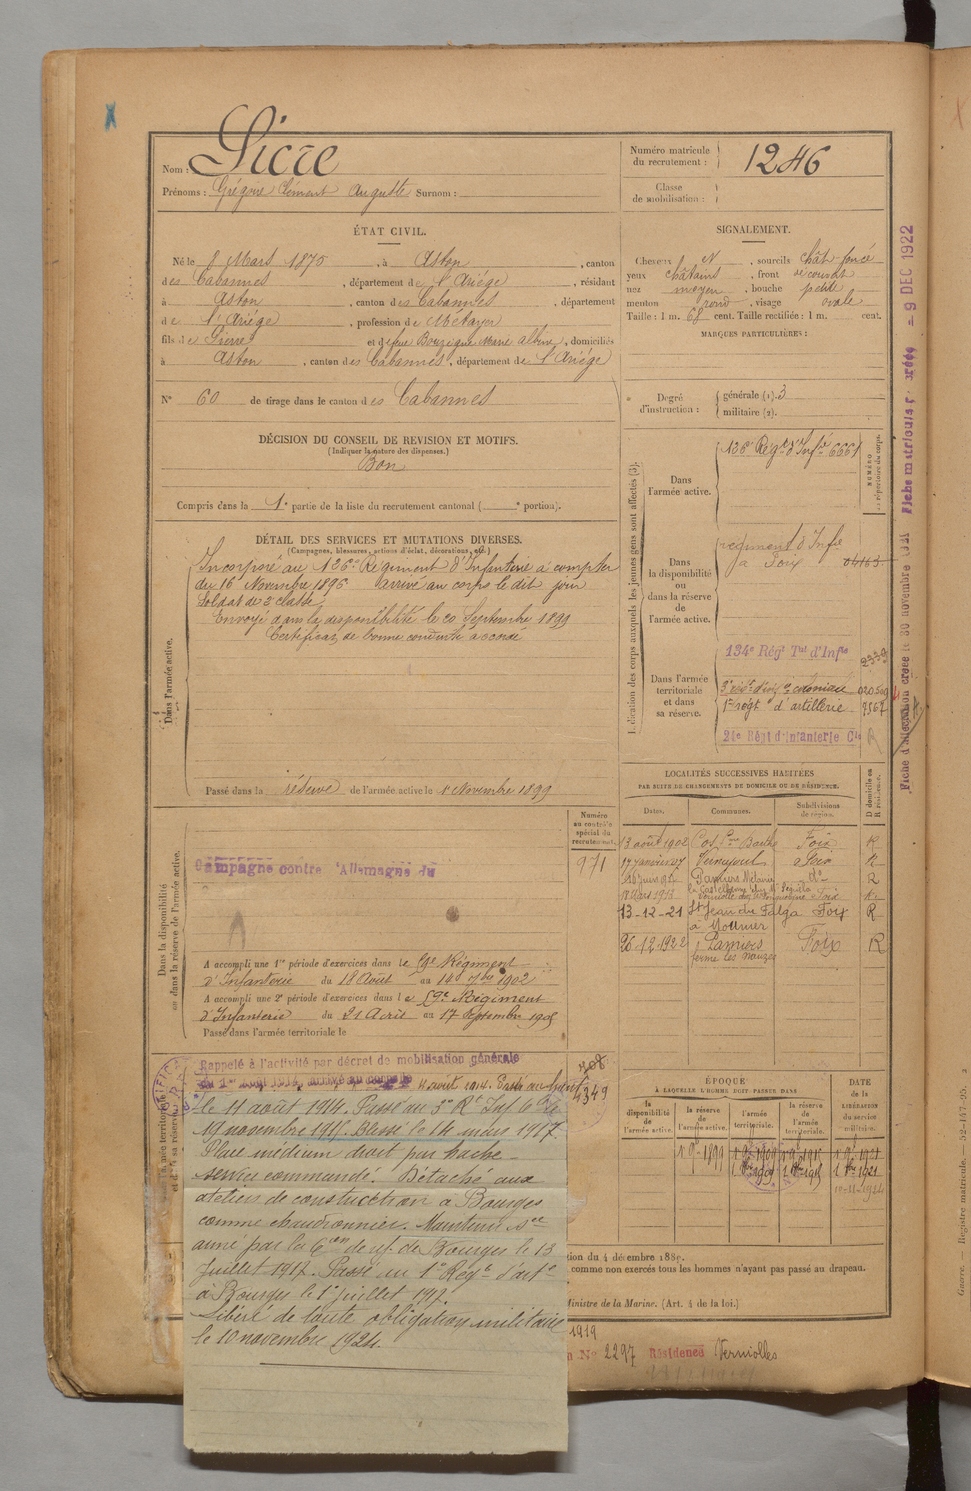 Nom : Sicre
Prénoms : Grégoire Clément Auguste Surnom :
Numéro matricule du recrutement : 1246
Classe de mobilisation :
ÉTAT CIVIL.
Né le 8 Mars 1875, à Aston, canton
des Cabannes, département de l'Ariège, résidant
à Aston, canton des Cabannes, département
de l'Ariège, profession de Métayer
fils de Pierre et de feue Bouzigue Marie Albine, domiciliés
à Aston, canton des Cabannes, département de l'Ariège
N° 60 de tirage dans le canton des Cabannes
SIGNALEMENT.
Cheveux N, sourcils chât-foncé
yeux châtains, front découvert
nez moyen, bouche petite
menton rond, visage ovale
Taille : 1 m. 68 cent. Taille rectifiée : 1 m. cent.
MARQUES PARTICULIÈRES :
Degré d'instruction : générale (1). 3
militaire (2).
DÉCISION DU CONSEIL DE REVISION ET MOTIFS.
(Indiquer la nature des dispenses.)
Bon
Compris dans la 1e partie de la liste du recrutement cantonal ( e portion).
DÉTAIL DES SERVICES ET MUTATIONS DIVERSES.
(Campagnes, blessures, actions d'éclat, décorations, etc.)
Dans l'armée active.
Incorporé au 126e Régiment d'Infanterie à compter
du 16 Novembre 1896 arrivé au corps le dit jour
Soldat de 2e classe.
Envoyé dans la disponibilité le 20 Septembre 1899
Certificat de bonne conduite accordé
Passé dans la réserve de l'armée active le 1 Novembre 1899
Indication des corps auxquels les jeunes gens sont affectés (3).
NUMÉRO au répertoire du corps.
Dans l'armée active.
126e Régt d'Infie 6661
Dans la disponibilité ou dans la réserve de l'armée active.
régiment d'Infie
à Foix
Dans l'armée territoriale et dans sa réserve.
134e Régt Tal d'Infie
3e régt d'infie coloniale
1er régt d'artillerie 7567
21e Régt d'Infanterie Cle
Dans la disponibilité ou dans la réserve de l'armée active.
Numéro au contrôle spécial du recrutement.
971
Campagne contre l'Allemagne du
A accompli une 1re période d'exercices dans le 59e Régiment
d'Infanterie du 18 Août au 14 7bre 1902
A accompli une 2e période d'exercices dans le 59e Régiment
d'Infanterie du 21 Avril au 17 Septembre 1905
Passé dans l'armée territoriale le
LOCALITÉS SUCCESSIVES HABITÉES
PAR SUITE DE CHANGEMENTS DE DOMICILE OU DE RÉSIDENCE.
Dates. Communes. Subdivisions de région. D domicile ou R résidence.
13 août 1902 Cos Foix R
17 janvier 07 à Foix R
Pamiers do R
Foix R
13-12-21 St Jean du Falga Foix R
26-12-1922 Pamiers Foix R
Rappelé à l'activité par décret de mobilisation générale
du 1er août 1914, arrivé au corps le 4 août 1914.
le 11 août 1914. Passé au 3e Rt Inf. Cle le
19 novembre 1915. Blessé le 14 mars 1917.
Plaie médium droit par hache -
service commandé. Détaché aux
ateliers de construction à Bourges
comme chaudronnier. Maintenu sce
armé par la Con de réf. de Bourges le 13
Juillet 1917. Passé au 1er Régt d'artie
à Bourges le 1er juillet 1917.
Libéré de toute obligation militaire
le 10 novembre 1924.
ÉPOQUE
À LAQUELLE L'HOMME DOIT PASSER DANS
la disponibilité de l'armée active. la réserve de l'armée active. l'armée territoriale. la réserve de l'armée territoriale. DATE DE LA LIBÉRATION du service militaire.
1 9bre 1899 1 9bre 1909 1 9bre 1915 1 9bre 1921
1 8bre 1909 1 8bre 1915 1 8bre 1921
10-11-1924
tion du 4 décembre 1889.
comme non exercés tous les hommes n'ayant pas passé au drapeau.
Ministre de la Marine. (Art. 4 de la loi.)
1919
N° 2297 Résidence Verniolles
Fiche d'allocation créée le 30 novembre 1931 Fiche matricule créée - 9 DEC 1922
Guerre. — Registre matricule. — 52-147-95.